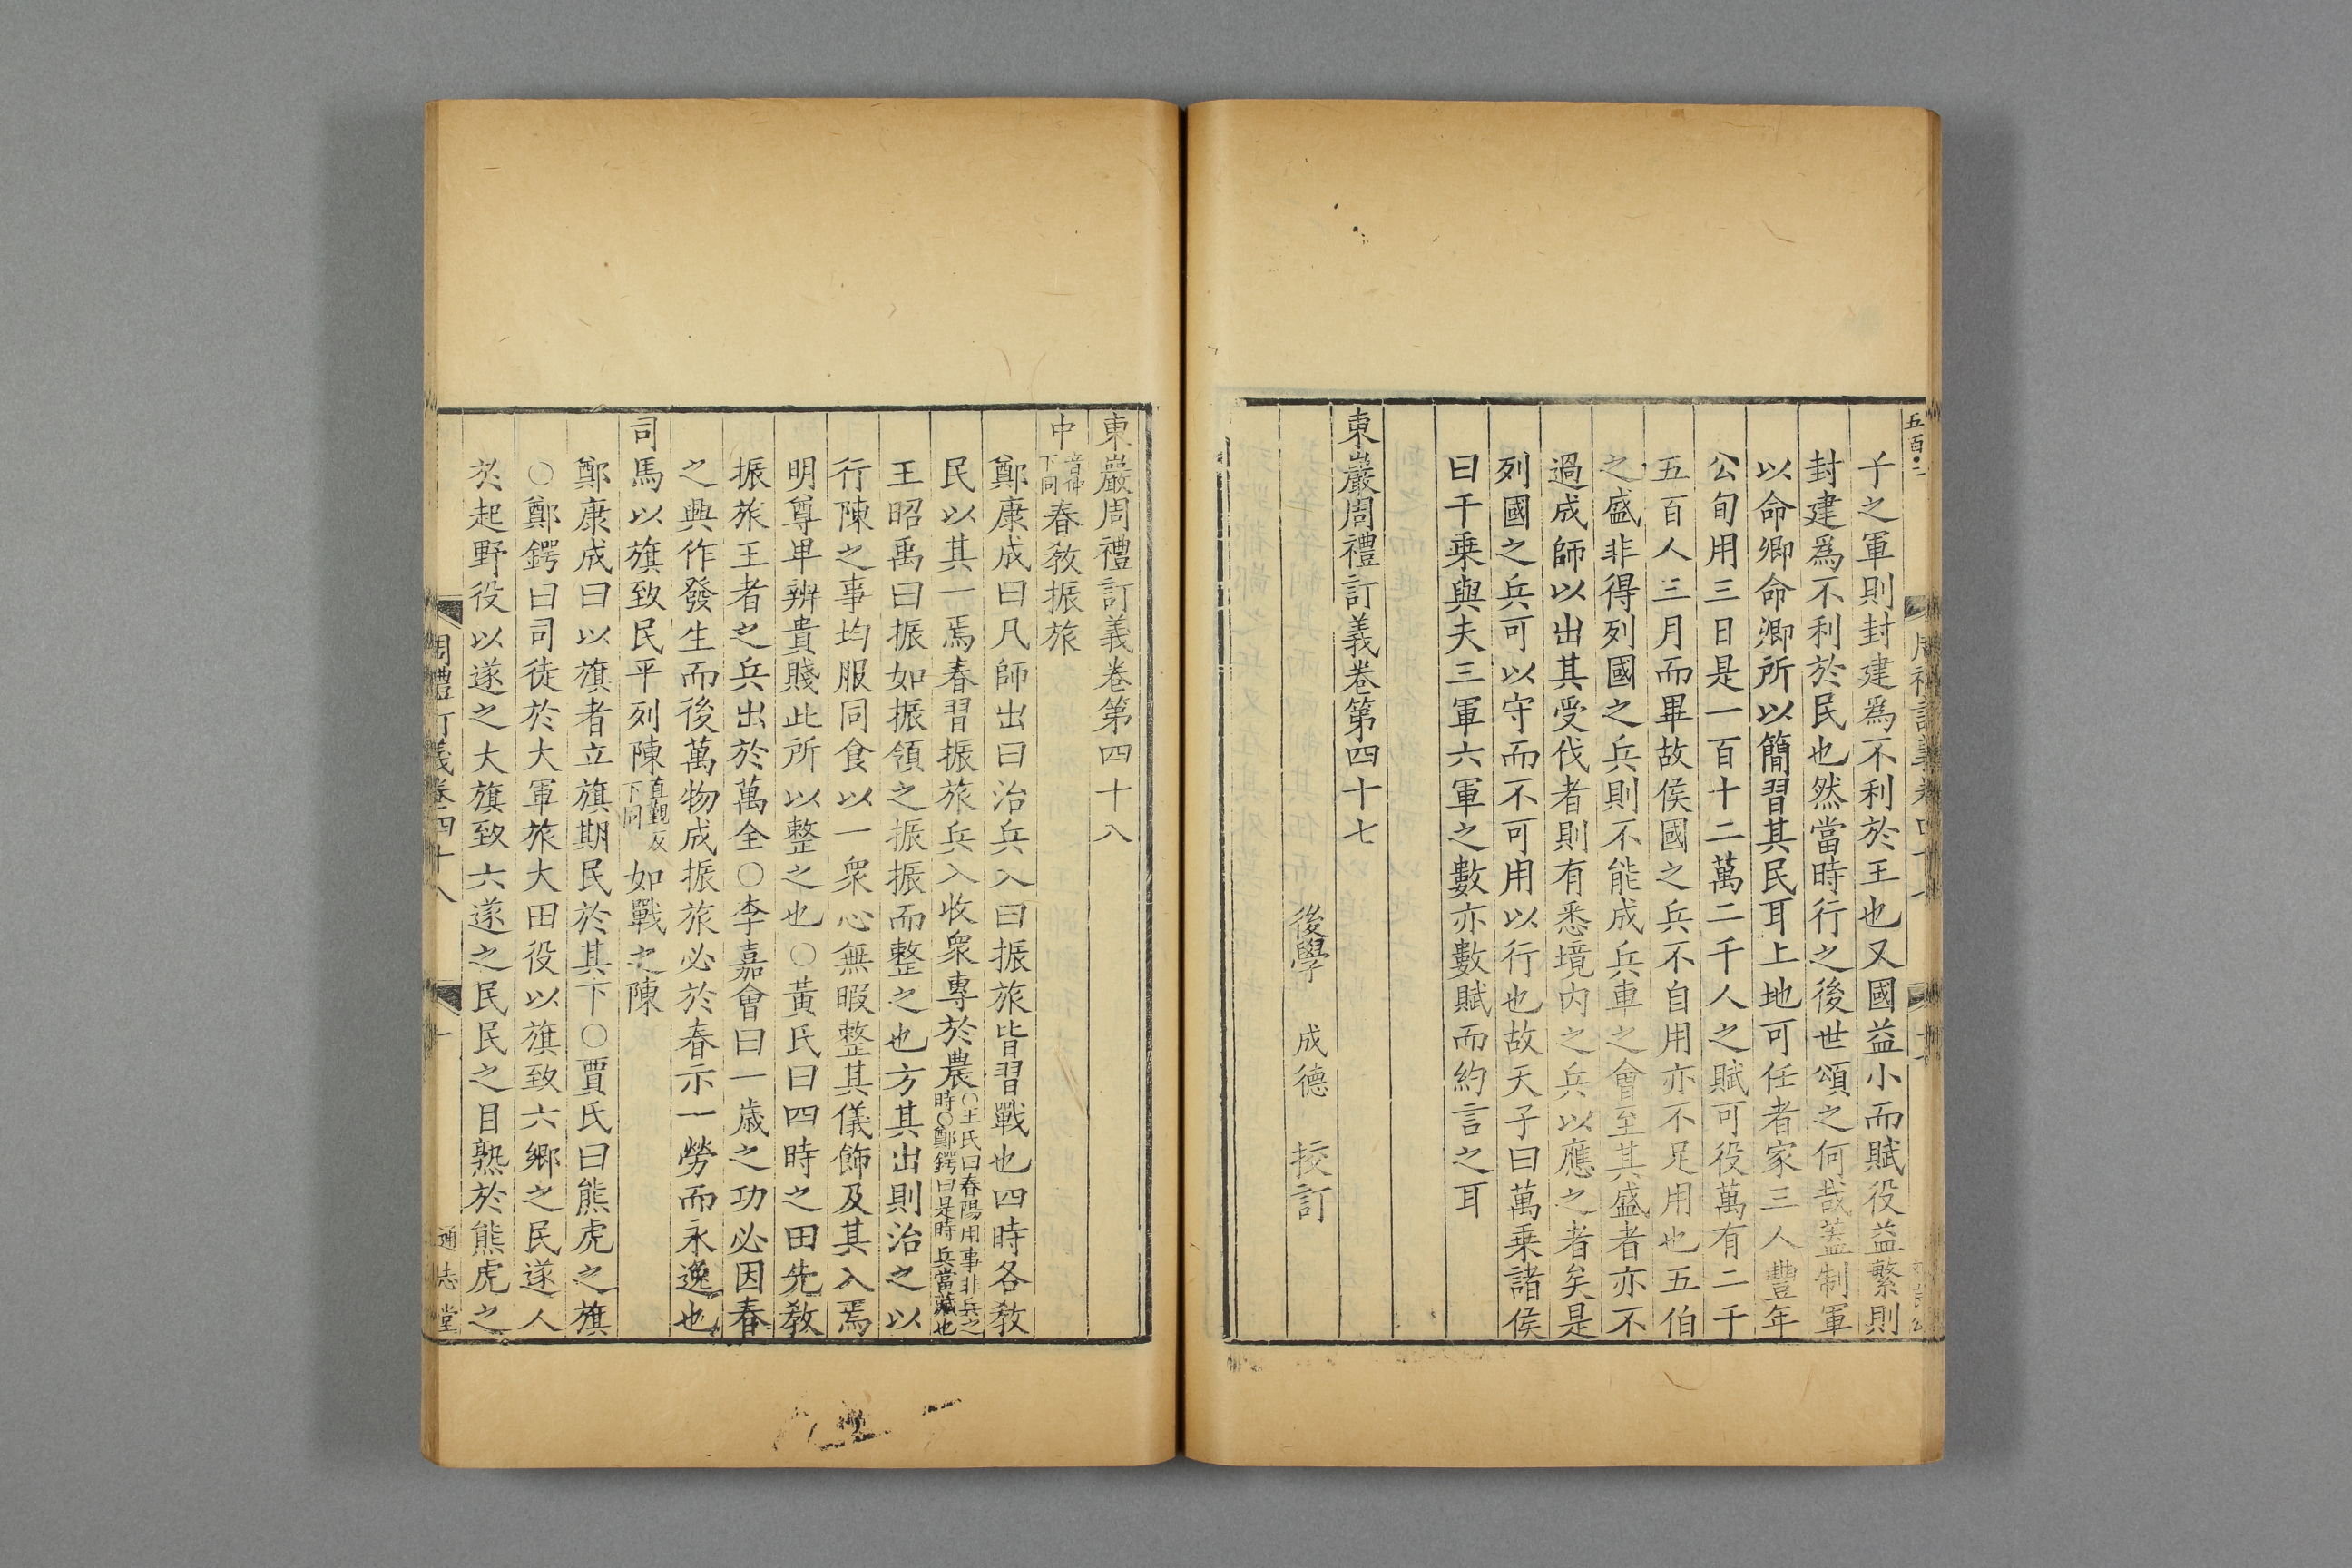 子之軍則封建爲不利於王也又國益小而賦役益繁則
封建爲不利於民也然當時行之後世頌之何哉蓋制軍
以命卿命卿所以簡習其民耳上地可任者家三人豐年
公旬用三日是一百十二萬二千人之賦可役萬有二千
五百人三月而畢故侯國之兵不自用亦不足用也五伯
之盛非得列國之兵則不能成兵車之會至其盛者亦不
過成師以出其受伐者則有悉境内之兵以應之者矣是
列國之兵可以守而不可用以行也故天子曰萬乗諸侯
曰千乗與夫三軍六軍之數亦數賦而約言之耳
東巖周禮訂義卷第四十七
後學 成德 挍訂
東巖周禮訂義卷第四十八
中音仲下同春敎振旅
鄭康成曰凡師出曰治兵入曰振旅皆習戰也四時各敎
民以其一焉春習振旅兵入收衆專於農○王氏曰春陽用事非兵之時○鄭鍔曰是時兵當藏也
王昭禹曰振如振領之振振而整之也方其出則治之以
行陳之事均服同食以一衆心無暇整其儀飾及其入焉
明尊卑辨貴賤此所以整之也○黃氏曰四時之田先敎
振旅王者之兵出於萬全○李嘉會曰一歲之功必因春
之興作發生而後萬物成振旅必於春示一勞而永逸也
司馬以旗致民平列陳直觀反下同如戰之陳
鄭康成曰以旗者立旗期民於其下○賈氏曰熊虎之旗
○鄭鍔曰司徒於大軍旅大田役以旗致六鄉之民遂人
於起野役以遂之大旗致六遂之民民之目熟於熊虎之
周禮訂義卷四十八 一 通志堂